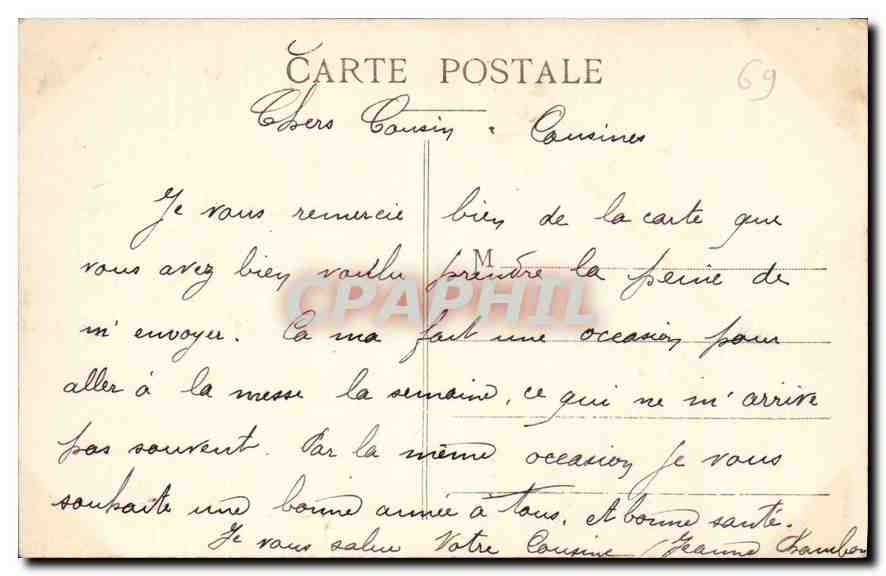 CARTE POSTALE
69
Chers Cousin, Cousines
Je vous remercie bien de la carte que
M
vous avez bien voulu prendre la peine de
CPAPHIL
m'envoyer. Ca ma fait une occasion pour
aller à la messe la semaine, ce qui ne m'arrive
pas souvent. Par la même occasion Je vous
souhaite une bonne année à tous, et bonne santé.
Je vous salue Votre Cousine Jeanne